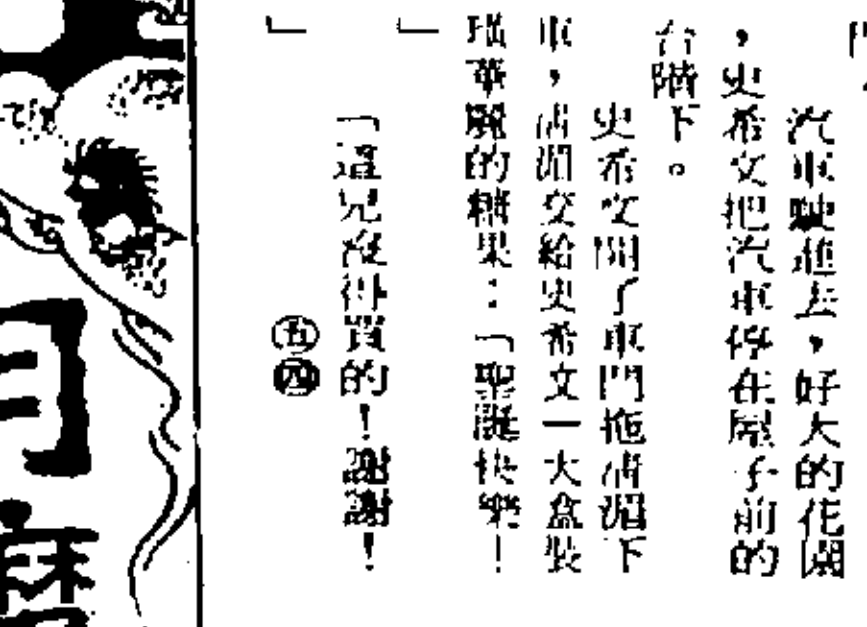 汽車駛進去,好大的花園
,史希文把汽車停在屋子前的
台階下。
史希文開了車門拖湄湄下
車,湄湄交給史希文一大盒裝
璜華麗的糖果:「聖誕快樂!
」
「這兒沒得買的!謝謝!
」
㊄㊃